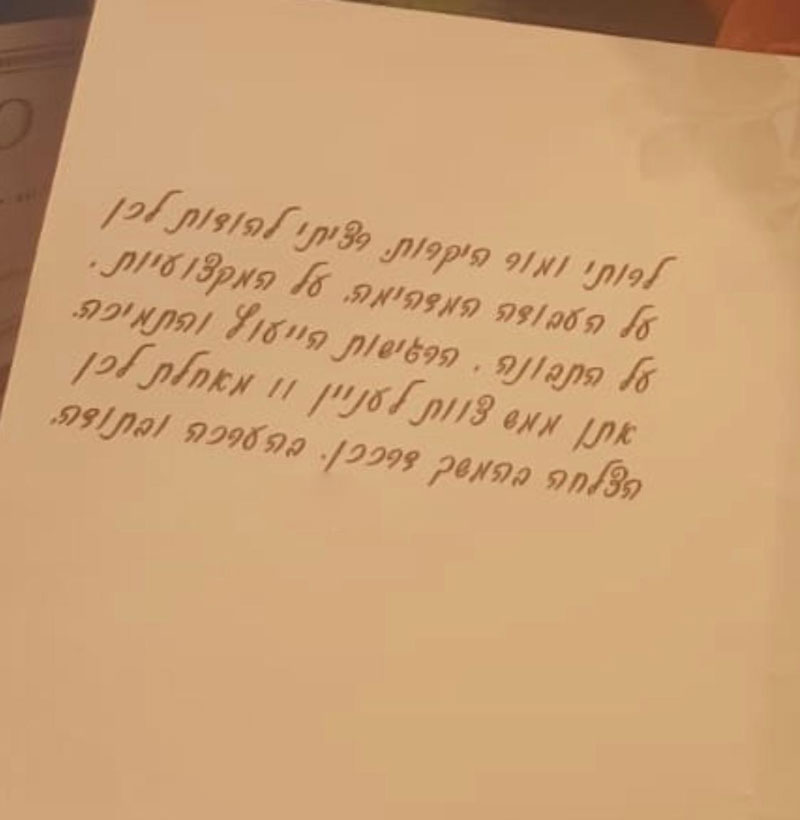 לרותי ומור היקרות. רציתי להודות לכן
על העבודה המדהימה. על המקצועיות.
על התבונה. הרגישות הייעוץ והתמיכה.
אתן ממש צוות לעניין !! מאחלת לכן
הצלחה בהמשך דרככן. בהערכה ובתודה.